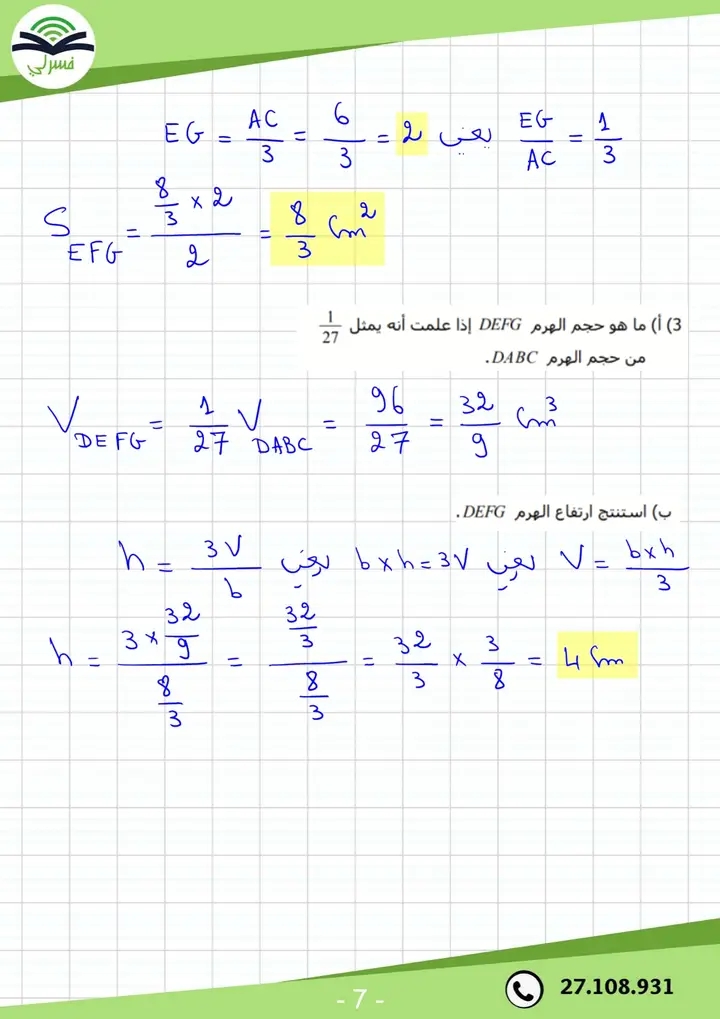 فسرلي
EG = AC/3 = 6/3 = 2 يعني EG/AC = 1/3
S_EFG = (8/3 × 2)/2 = 8/3 Cm²
3) أ) ما هو حجم الهرم DEFG إذا علمت أنه يمثل 1/27
من حجم الهرم DABC.
V_DEFG = 1/27 V_DABC = 96/27 = 32/9 Cm³
ب) استنتج ارتفاع الهرم DEFG.
h = 3V/b يعني b×h = 3V يعني V = b×h/3
h = (3 × 32/9)/(8/3) = (32/3)/(8/3) = 32/3 × 3/8 = 4 Cm
- 7 -
27.108.931